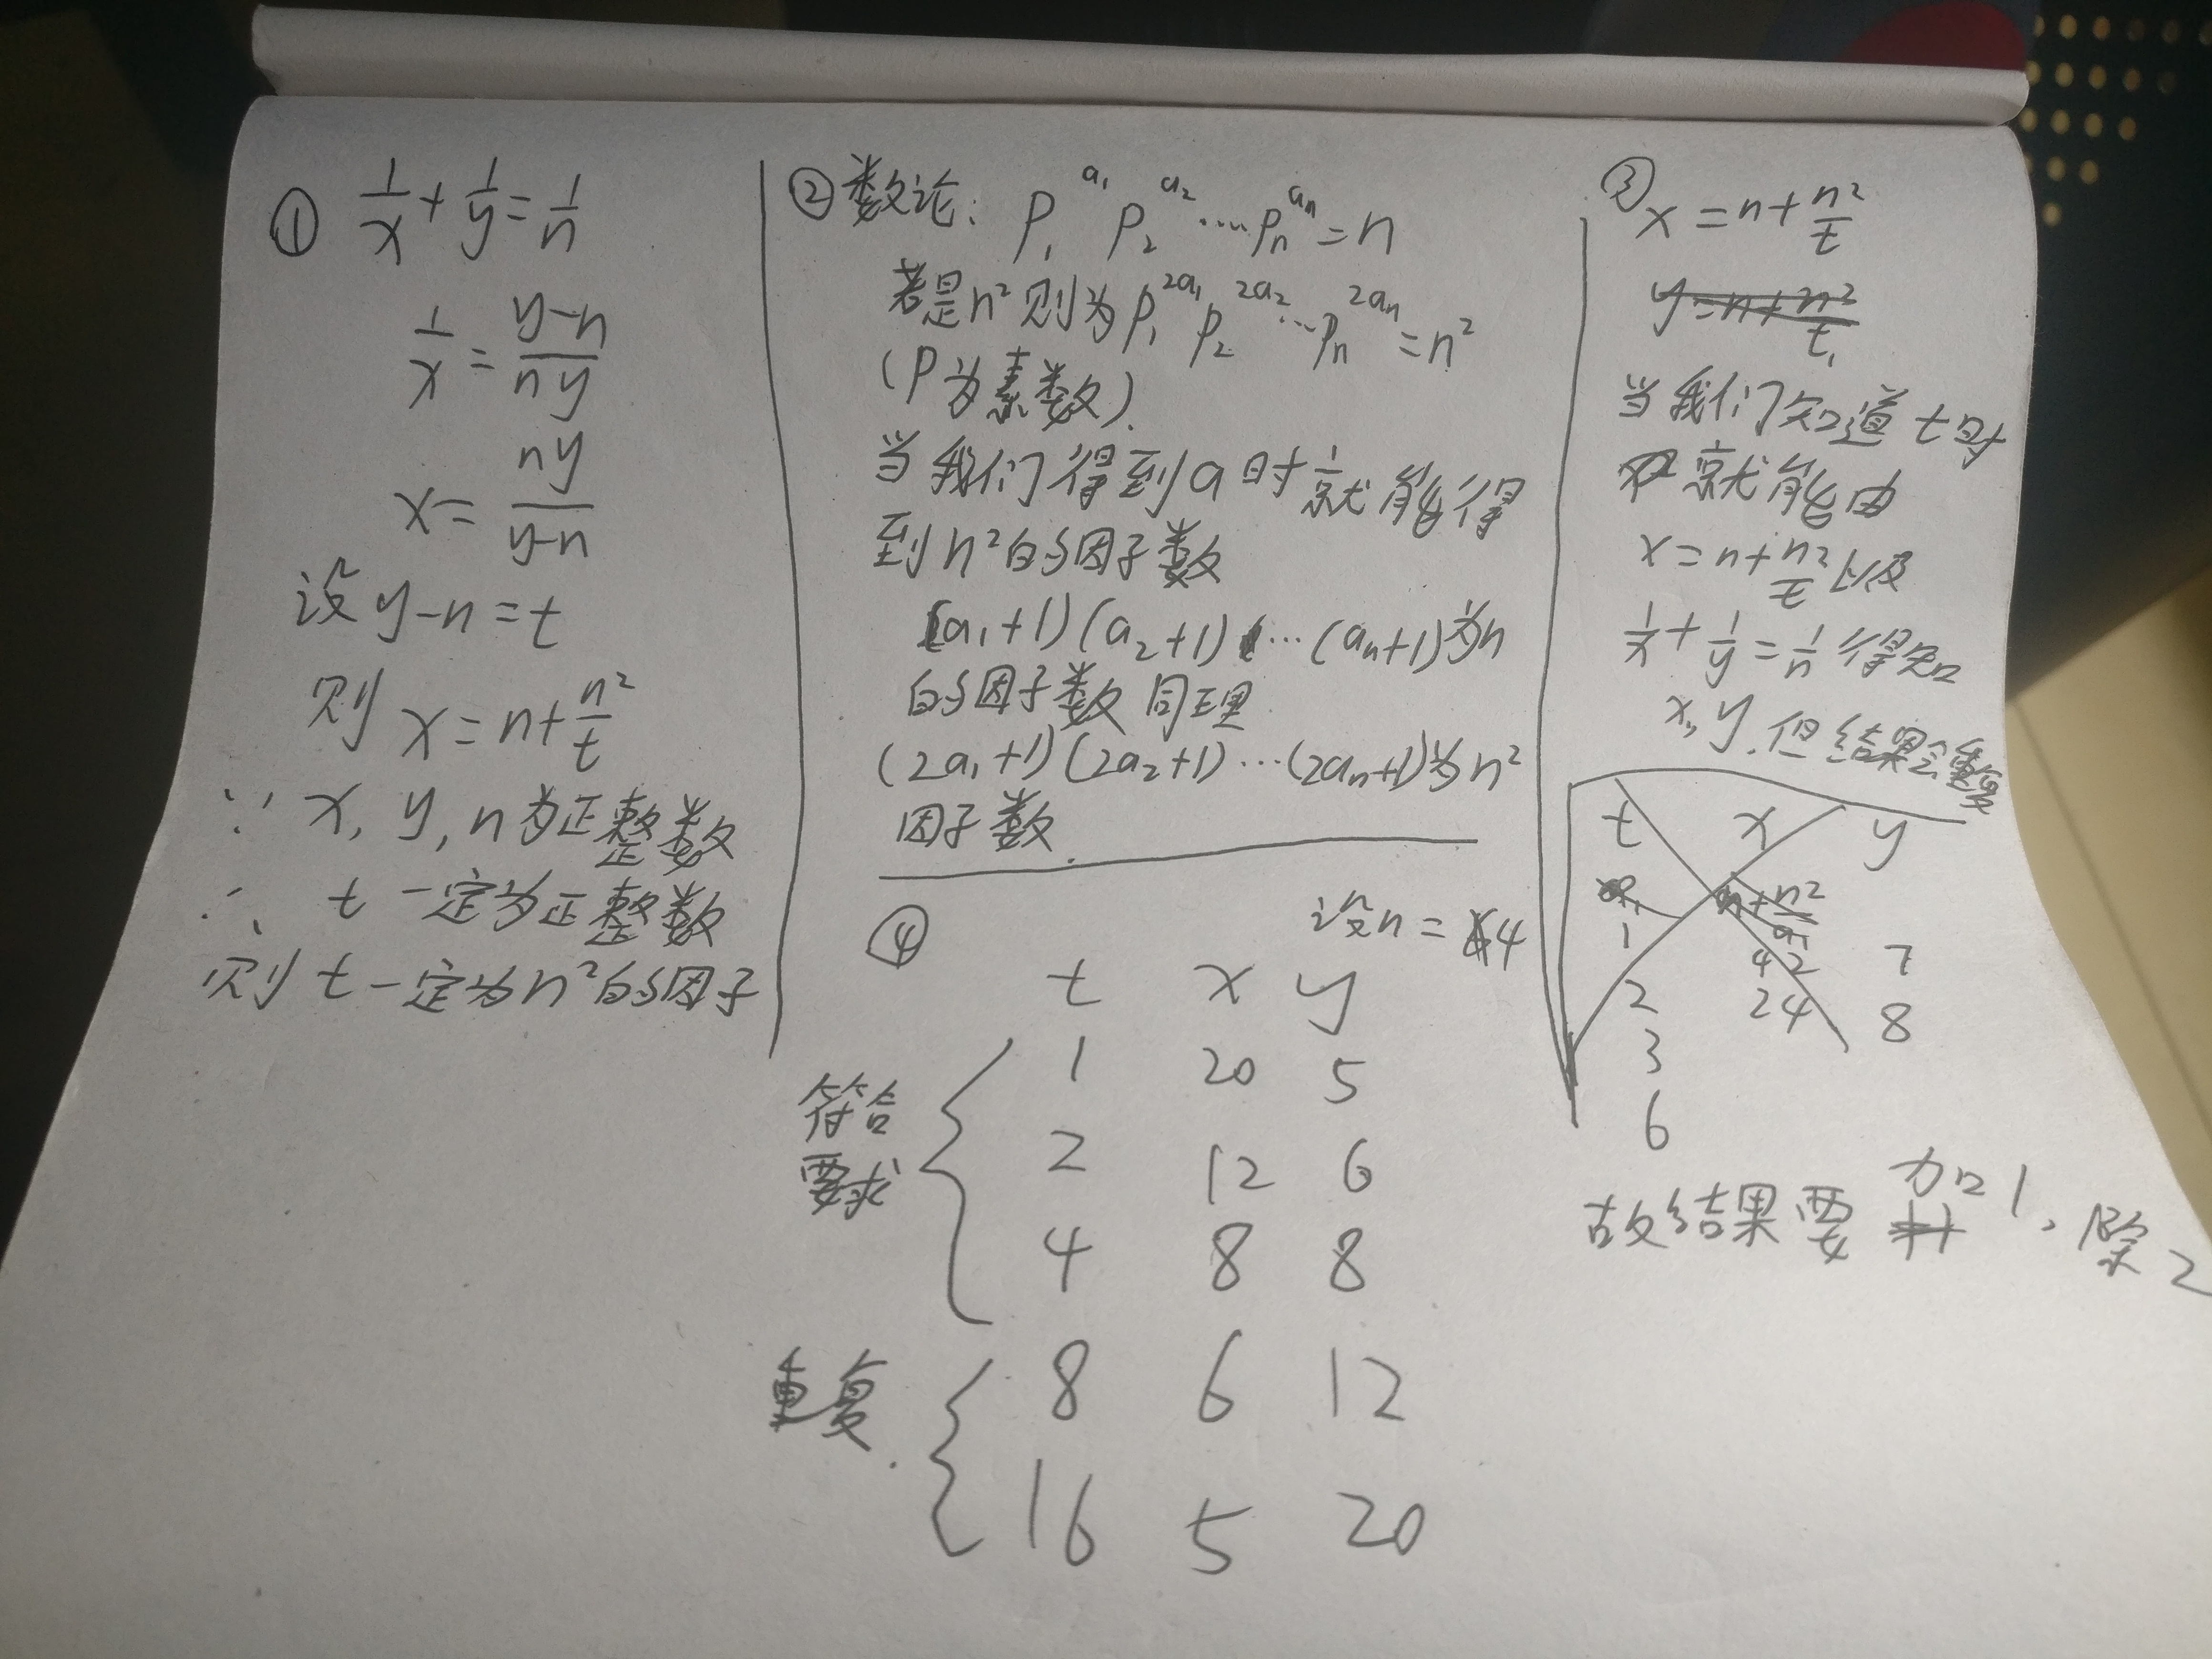 ① 1/x + 1/y = 1/n
1/x = (y-n)/(ny)
x = ny/(y-n)
设 y-n=t
则 x=n+n²/t
∵ x, y, n为正整数
∴ t 一定为正整数
则 t 一定为n²的因子
② 数论: P₁^a₁ P₂^a₂ ... Pₙ^aₙ = n
若是n²则为P₁^2a₁ P₂^2a₂ ... Pₙ^2aₙ = n²
(P为素数).
当我们得到a时就能得
到n²的因子数
(a₁+1)(a₂+1)...(aₙ+1)为n
的因子数 同理
(2a₁+1)(2a₂+1)...(2aₙ+1)为n²
因子数.
③ x=n+n²/t
y=n+n²/t₁
当我们知道t时
就能由
x=n+n²/t以及
1/x+1/y=1/n得知
x, y. 但结果会重复
t x y
n+n²/a₁
1 42 7
2 24 8
3
6
故结果要 加1, 除2
④ 设n=4
t x y
符合
要求
1 20 5
2 12 6
4 8 8
重复.
8 6 12
16 5 20